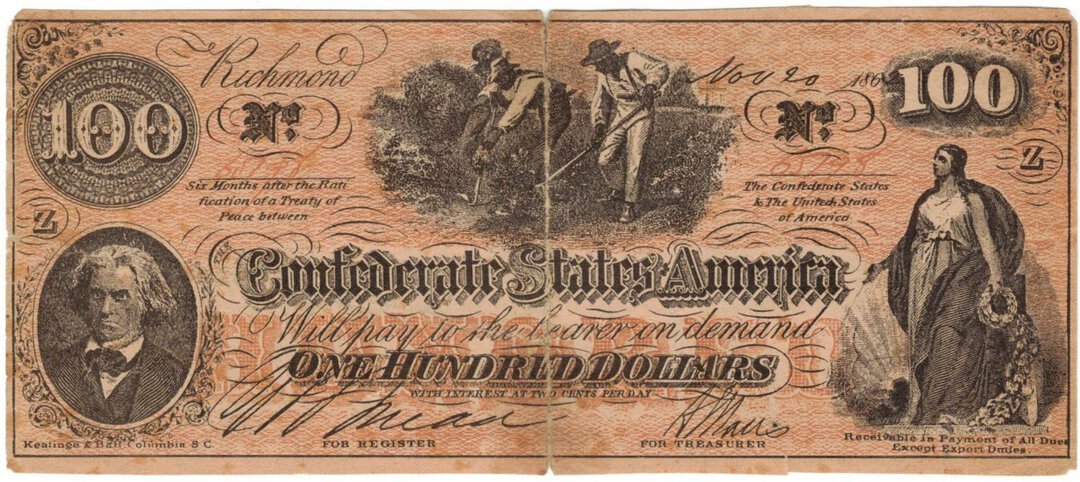 100
Richmond
Nov 20 186
100
No.
No.
Six Months after the Rati
fication of a Treaty of
Peace between
The Confederate States
& The United States
of America
Z
Z
THE
Confederate States of America
Will pay to the bearer on demand
ONE HUNDRED DOLLARS
WITH INTEREST AT TWO CENTS PER DAY
FOR REGISTER
FOR TREASURER
Keatinge & Ball Columbia S C.
Receivable in Payment of All Dues
Except Export Duties.